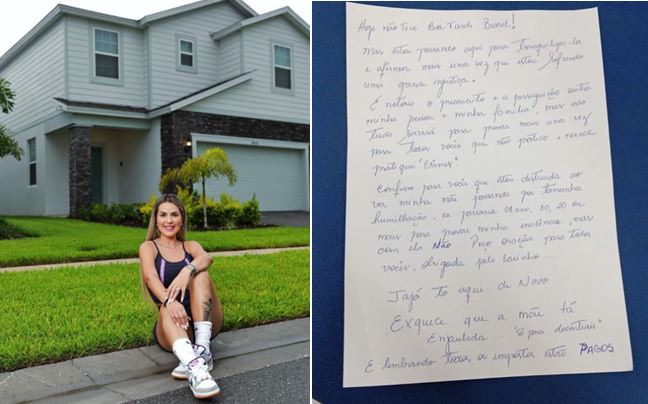 Hoje não Teve Boa Tarde Brasil!
Mas estou passando aqui para tranquiliza-los
e afirmar mais uma vez que estou sofrendo
uma grande injustiça.
É notório o preconceito e a perseguição contra
minha pessoa e minha família, mas isso
tudo servirá para provar mais uma vez
para todos vocês que não pratico e nunca
pratiquei "Crimes".
Confesso para vocês que estou destruída ao
ver minha mãe passando por tamanha
humilhação, eu passaria 01 ano, 10, 20 ou
mais para provar minha inocência, mas
com ela Não. Peço orações para todos
vocês, obrigada pelo carinho...
Jajá to aqui de Novo...
Exquece que a mãe tá
Enpulada... "só pra descontrair"
E lembrando todos os impostos estão PAGOS